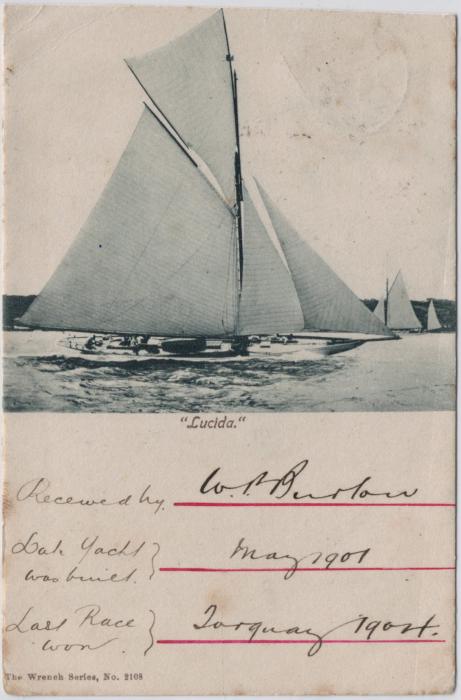 "Lucida."
Received by. W. P. Burton
Date Yacht } May 1901
was built.
Last Race } Torquay 1904.
won.
The Wrench Series, No. 2108